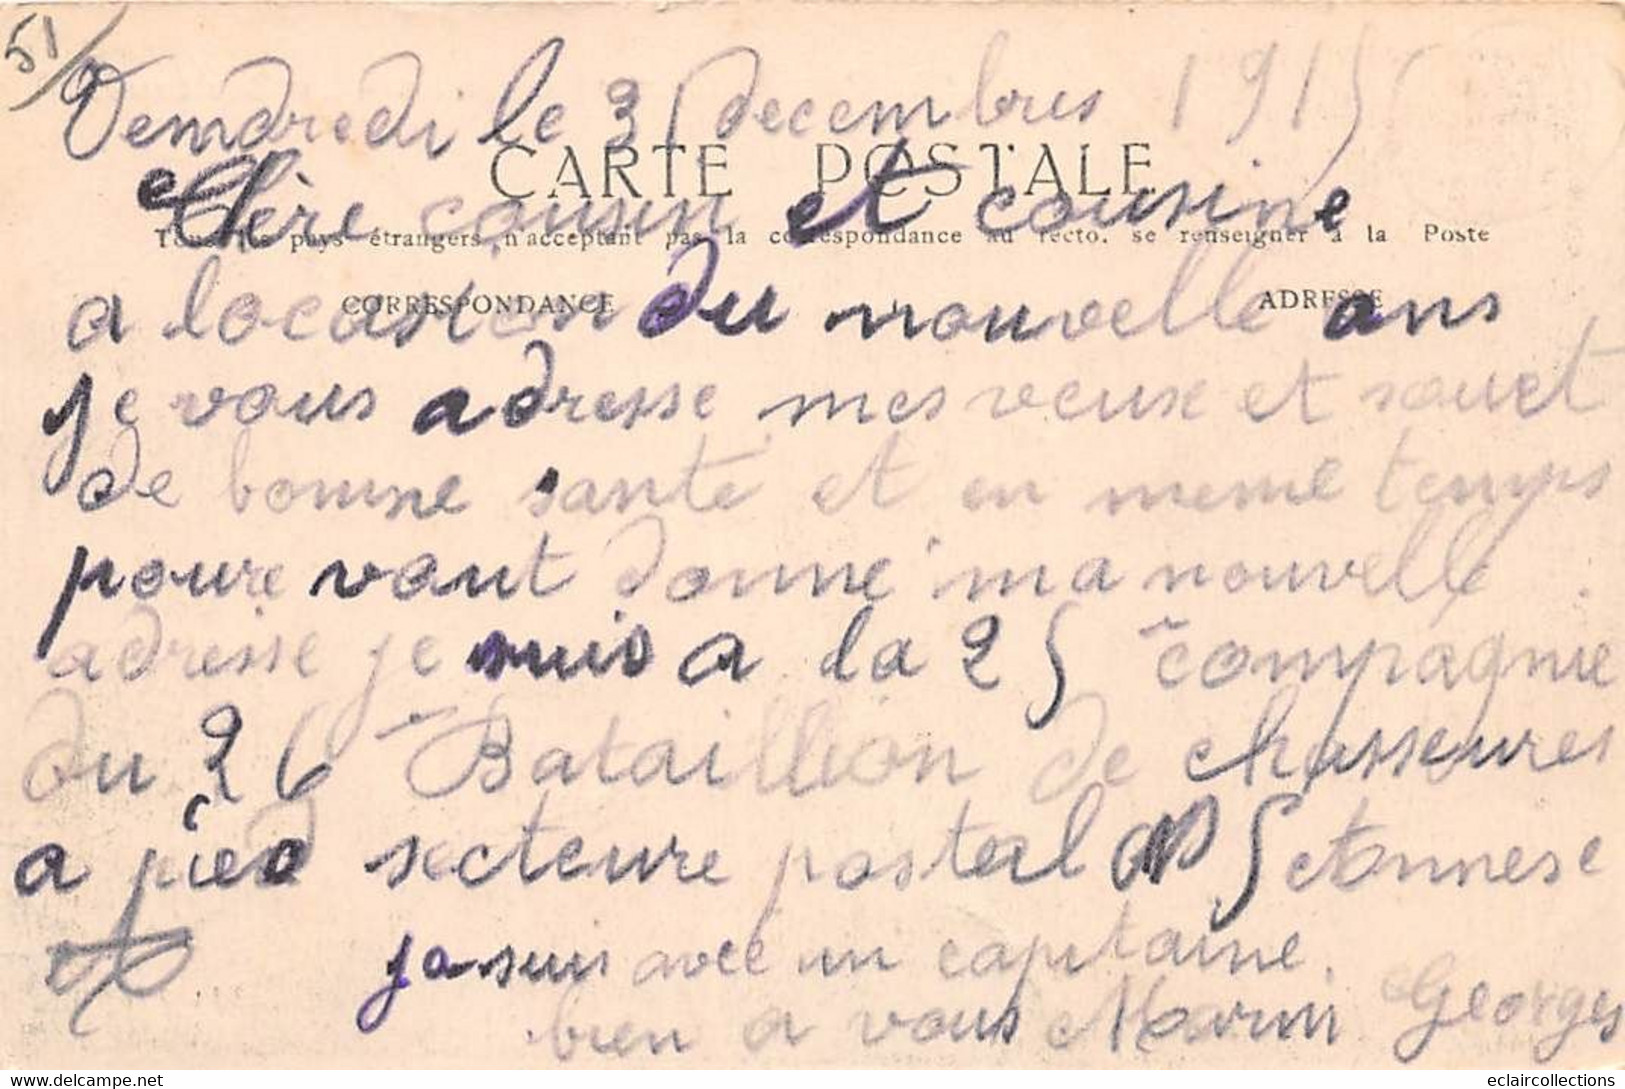 51
Vendredi le 3 decembres 1915
CARTE POSTALE
Chère cousin et cousine
Tous les pays étrangers n'acceptant pas la correspondance au recto, se renseigner à la Poste
CORRESPONDANCE
ADRESSE
a locasion du nouvelle ans
je vous adresse mes veuse et souet
de bonne santé et en meme temps
poure vout donne ma nouvelle
adresse je suis a la 25 compagnie
du 26 Bataillion de chasseures
a pied secteure postal 5 etonnese
ja suis avec un capitaine.
bien a vous Marin Georges
eclaircollections